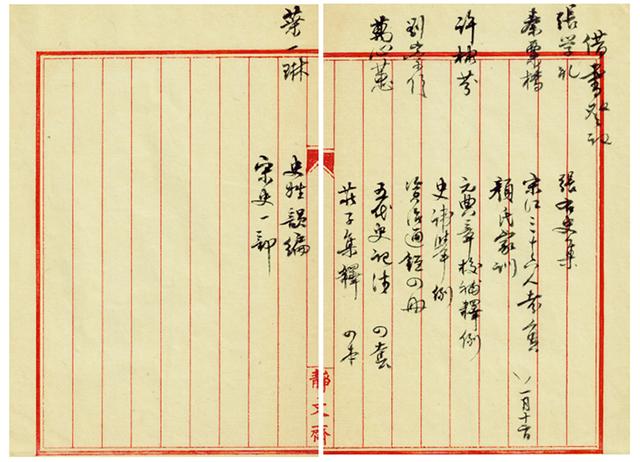 借書登記
張学礼 張右史集
宋江三十六人考實 一月十
顏氏家訓
許 芬 元典章校補釋例
史諱舉例
劉 資治通鑑四冊
萬心蕙 五代史記注 四套
莊子集釋 四本
葉一琳 史姓韻編
宋史一部
靜文齋